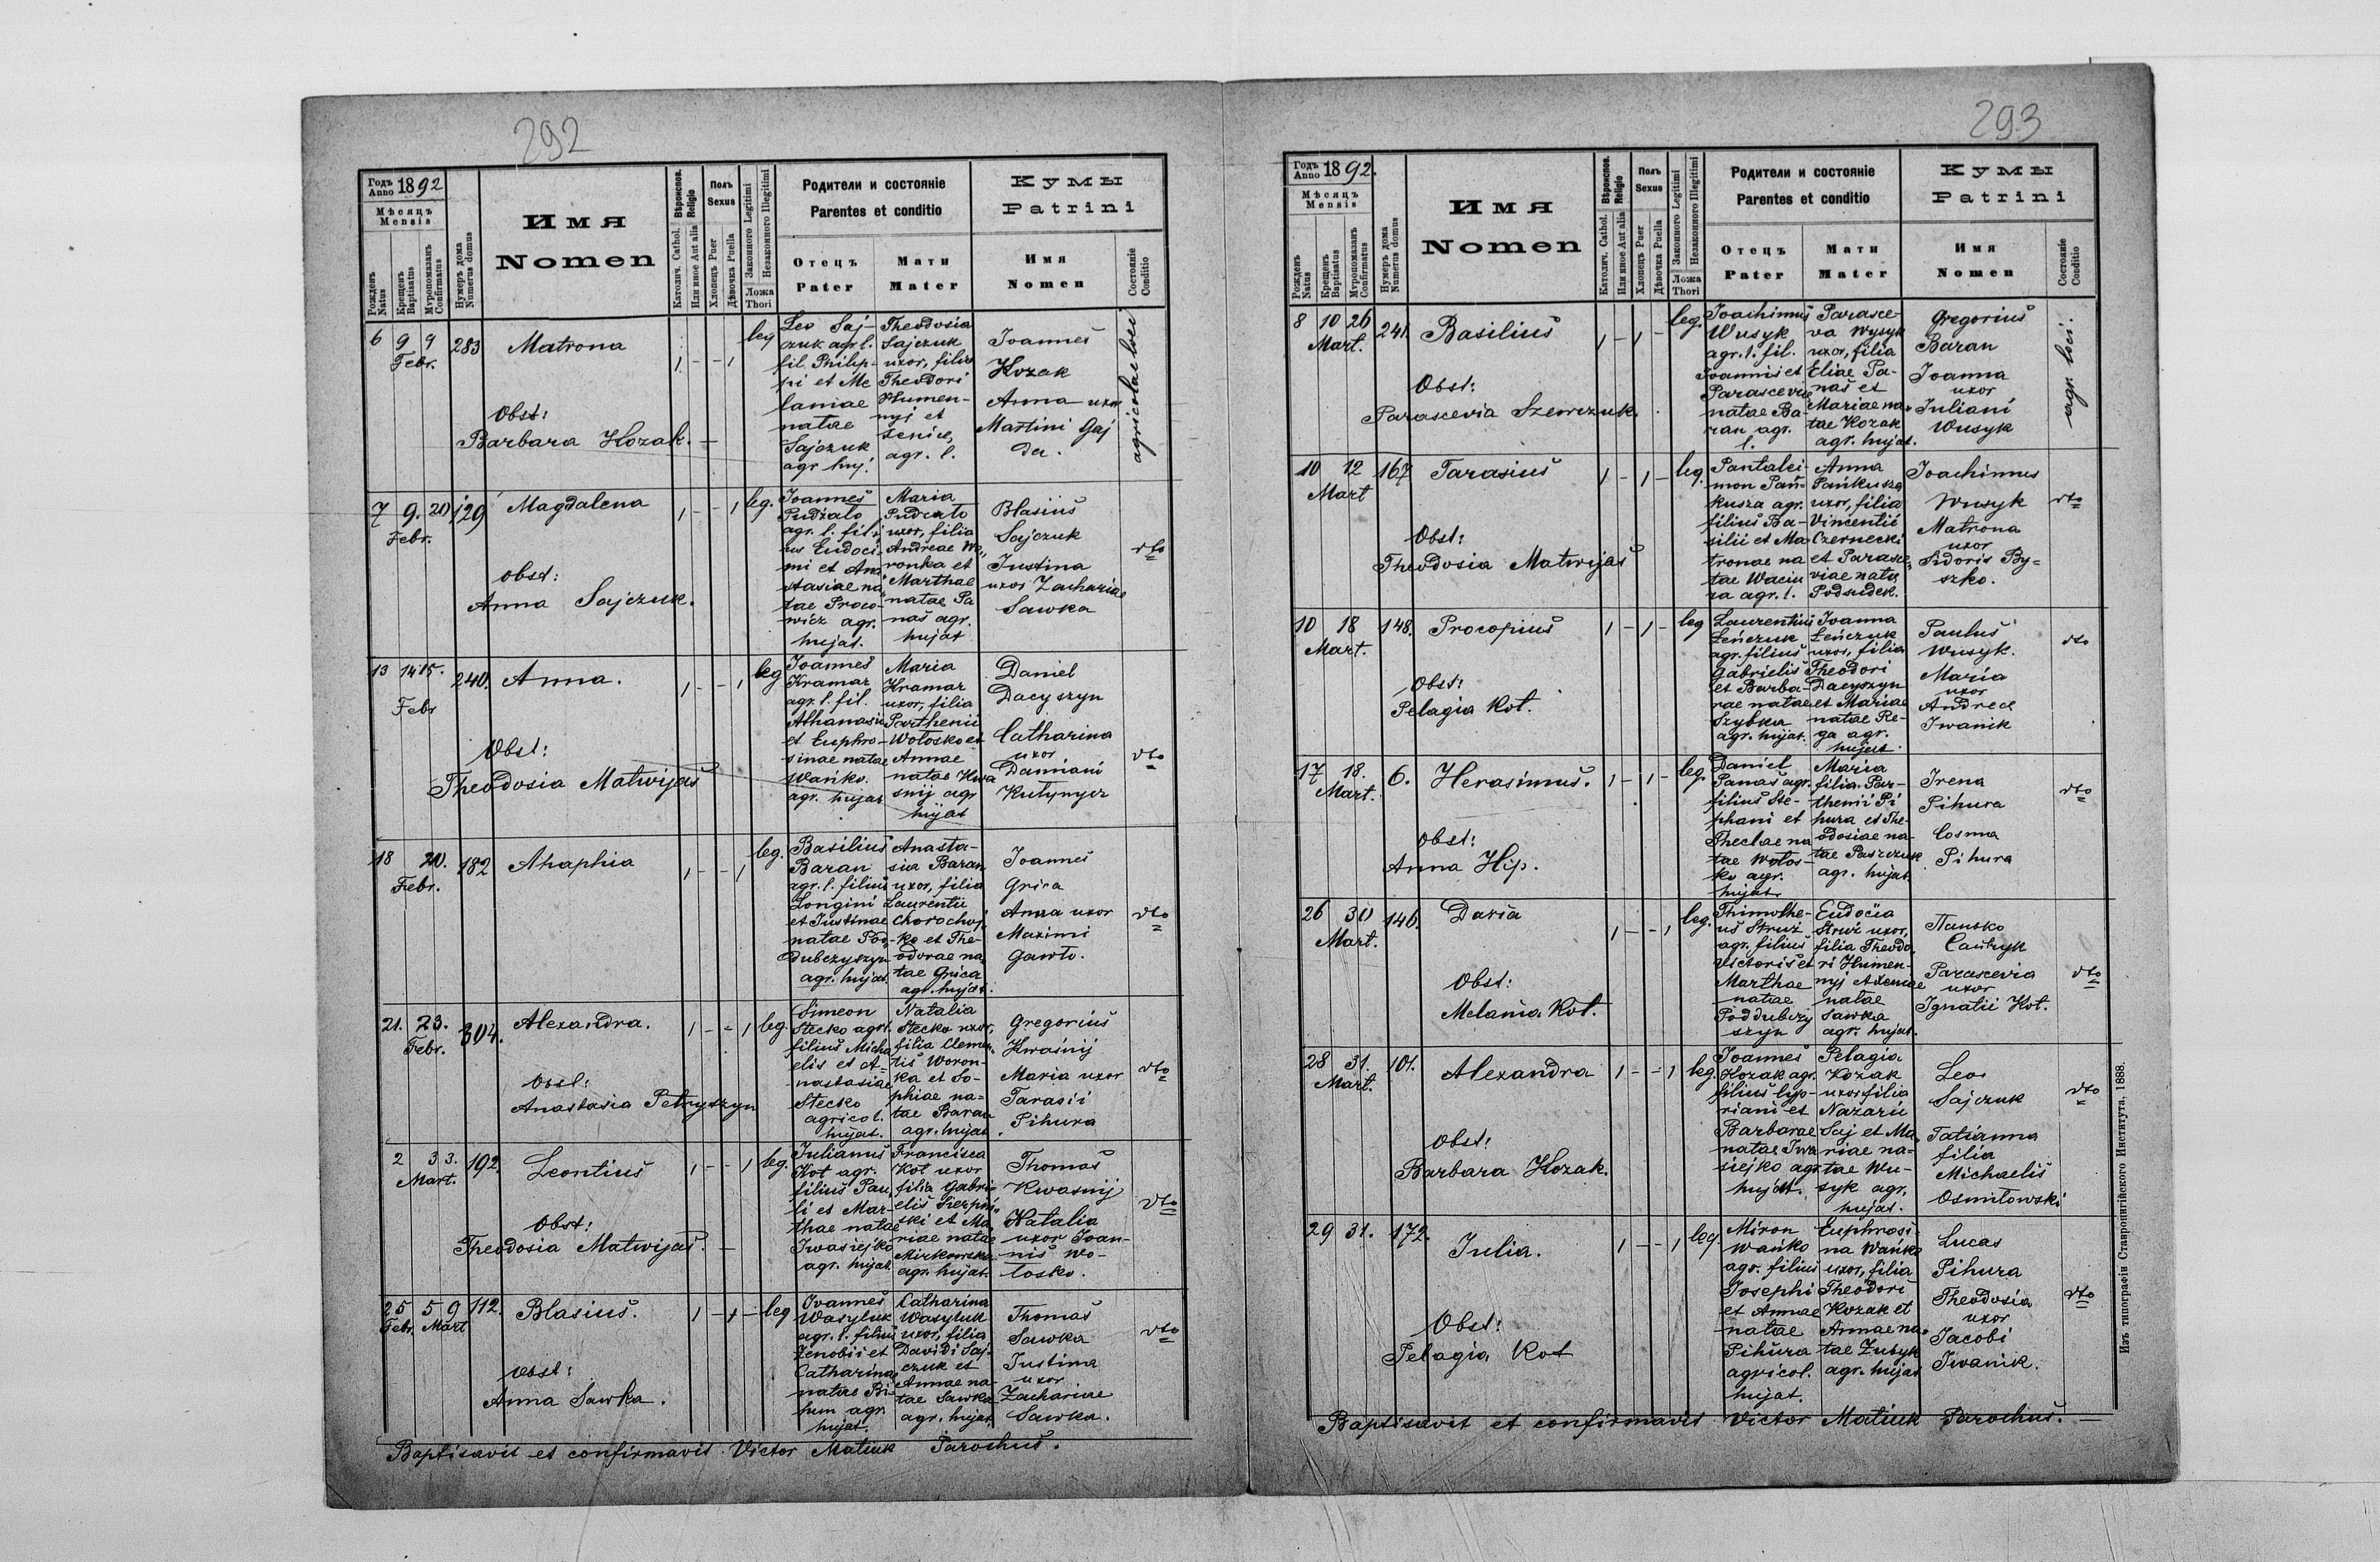 292
Годъ Anno 1892
Мѣсяцъ
Mensis
Рожденъ Natus
Крещенъ Baptisatus
Мѵропомазанъ Confirmatus
Нумеръ дома Numerus domus
Имя
Nomen
Вѣроиспов. Religio
Католич. Cathol.
Или иное Aut alia
Полъ
Sexus
Хлопецъ Puer
Дѣвочка Puella
Законного Legitimi
Незаконного Illegitimi
Ложа
Thori
Родители и состояніе
Parentes et conditio
Отецъ
Pater
Мати
Mater
Кумы
Patrini
Имя
Nomen
Состояніе
Conditio
6 9 9
Febr.
283
Matrona
Obst:
Barbara Kozak.
1 - - 1
leg
Leo Saj-
czuk agr. l.
fil. Philip-
pi et Me
laniae
natae
Sajczuk
agr huj.
Theodosia
Sajczuk
uxor, filia
Theodori
Humen-
nyj et
Xenice
agr. l.
Joannes
Kozak
Anna uxor
Martini Gaj
da.
agricolae loci
7 9. 20
Febr.
129
Magdalena
obst:
Anna Sajczuk.
1 - - 1
leg.
Joannes
Pudzato
agr. l. fili
us Eudoci-
mi et Ana
stasiae na
tae Proco-
wicz agr.
hujat.
Maria
Pudzato
uxor, filia
Andreae Wo
ronka et
Marthae
natae Pa
naś agr.
hujat
Blasius
Sajczuk
Justina
uxor Zachariae
Sawka
dto
13 14 15.
Febr
240.
Anna.
Obst:
Theodosia Matwijas
1 - - 1
leg
Joannes
Kramar
agr. l. fil.
Athanasii
et Euphro-
sinae natae
Wańko.
agr. hujat
Maria
Kramar
uxor, filia
Parthenii
Wołosko et
Annae
natae Kwa
snij agr
hujat
Daniel
Dacyszyn
Catharina
uxor
Damiani
Kutynycz
dto
18 20.
Febr.
182
Ahaphia
1 - - 1
leg.
Basilius
Baran
agr. l. filius
Longini
et Justinae
natae Pod-
dubczyszyn
agr. hujat.
Anasta-
sia Baran
uxor, filia
Laurentii
Chorochoj
ko et The-
odorae na
tae Grica
agr. hujat.
Joannes
Grica
Anna uxor
Maximi
Gawto.
dto
21. 23.
Febr.
304.
Alexandra.
Obst:
Anastasia Petryszyn
1 - - 1
leg.
Simeon
Stecko agr.
filius Micha
elis et A-
nastasiae
Stecko
agricol.
hujat.
Natalia
Stecko uxor,
filia Clemen
tis Woron-
ka et So-
phiae na-
tae Baran
agr. hujat.
Gregorius
Kwaśnij
Maria uxor
Tarasii
Pihura
dto
2 3 3.
Mart.
192.
Leontius
Obst:
Theodosia Matwijas.
1 - - 1
leg.
Julianus
Kot agr.
filius Pau
li et Mar-
thae natae
Iwasiejko
agr. hujat.
Francisca
Kot uxor
filia Gabri-
elis Sierpiń
ski et Ma
riae natae
Mirkowska
agr. hujat.
Thomas
Kwasnij
Natalia
uxor Joan-
nis Wo-
łosko.
dto
25 5 9
Febr. Mart
112.
Blasius.
obst:
Anna Sawka.
1 - 1 -
leg
Joannes
Wasyluk
agr. l. filius
Zenobii et
Catharinae
natae Bi-
hun agr.
hujat.
Catharina
Wasyluk
uxor, filia
Davidi Saj-
czuk et
Annae na-
tae Sawka
agr. hujat.
Thomas
Sawka
Justina
uxor
Zachariae
Sawka.
dto
Baptisavit et confirmavit Victor Matiuk Parochus.
293
Годъ Anno 1892.
Мѣсяцъ
Mensis
Рожденъ Natus
Крещенъ Baptisatus
Мѵропомазанъ Confirmatus
Нумеръ дома Numerus domus
Имя
Nomen
Вѣроиспов. Religio
Католич. Cathol.
Или иное Aut alia
Полъ
Sexus
Хлопецъ Puer
Дѣвочка Puella
Законного Legitimi
Незаконного Illegitimi
Ложа
Thori
Родители и состояніе
Parentes et conditio
Отецъ
Pater
Мати
Mater
Кумы
Patrini
Имя
Nomen
Состояніе
Conditio
8 10 26
Mart.
241.
Basilius
Obst:
Parascevia Szewczuk.
1 - 1 -
leg.
Joachimus
Wusyk
agr. l. fil.
Joannis et
Parasceviae
natae Ba-
ran agr.
l.
Parasce-
va Wusyk
uxor, filia
Eliae Pa-
naś et
Mariae na
tae Kozak
agr. hujat.
Gregorius
Baran
Joanna
uxor
Juliani
Wusyk
agr. loci.
10 12
Mart
167
Tarasius
Obst:
Theodosia Matwijas
1 - 1 -
leg.
Pantalei-
mon Pań-
kusza agr.
filius Ba-
silii et Ma
tronae na
tae Waciu
ra agr. l.
Anna
Pańkusza
uxor, filia
Vincentii
Czernecki
et Parasce
viae natae
Podsudek.
Joachimus
Wusyk
Matrona
uxor
Sidoris By=
szko.
dto
10 18
Mart.
148.
Procopius
Obst:
Pelagia Kot.
1 - 1 -
leg
Laurentius
Łeńczuk
agr. filius
Gabrielis
et Barba-
rae natae
Szybka
agr. hujat.
Joanna
Łeńczuk
uxor, filia
Theodori
Dacyszyn
et Mariae
natae Re-
ga agr.
hujat.
Paulus
Wusyk.
Maria
uxor
Andreae
Iwanik
dto
17 18.
Mart.
6.
Herasimus.
Obst:
Anna Hip.
1 - 1 -
leg.
Daniel
Panaś agr.
filius Ste-
phani et
Theclae na
tae Wołos-
ko agr.
hujat.
Maria
filia Par-
thenii Pi
hura et The-
odosiae na-
tae Paszczuk
agr. hujat.
Irena
Pihura
Cosma
Pihura
dto
26 30
Mart.
146.
Daria
Obst:
Melania Kot.
1 - - 1
leg.
Thimothe-
us Struż
agr. filius
Victoris et
Marthae
natae
Poddubczy
szyn
Eudocia
Struż uxor,
filia Theodo
ri Humen-
nyj Axeniae
natae
Sawka
agr. hujat.
Parascevia
uxor
Ignatii Kot.
dto
28 31.
Mart.
101.
Alexandra
Obst:
Barbara Kozak.
1 - - 1
leg.
Joannes
Kozak agr.
filius Cyp-
riani et
Barbarae
natae Iwa
siejko agr.
hujat.
Pelagia
Kozak
uxor filia
Nazarii
Saj et Ma
riae na-
tae Wu-
syk agr.
hujat.
Leo
Sajczuk
Tatianna
filia
Michaelis
Osmiłowski
dto
29 31.
172.
Julia.
Obst:
Pelagia Kot
1 - - 1
leg.
Miron
Wańko
agr. filius
Josephi
et Annae
natae
Pihura
agricol.
hujat.
Euphrosi-
na Wańko
uxor, filia
Theodori
Kozak et
Annae na
tae Zubyk
agr. hujat
Lucas
Pihura
Theodosia
uxor
Jacobi
Iwanik.
dto
Baptisavit et confirmavit Victor Matiuk Parochus.
Изъ типографіи Ставропигійского Института. 1888.